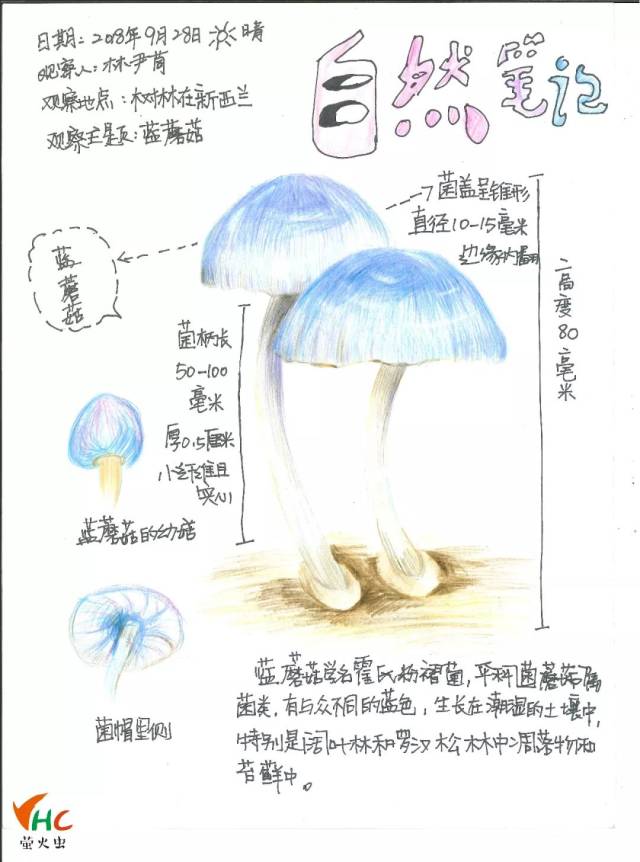 日期：2018年9月28日 晴
观察人：林尹萳
观察地点：树林在新西兰
观察主题：蓝蘑菇
自然笔记
菌盖呈锥形
直径10-15毫米
边缘内翻
蓝蘑菇
高度80毫米
菌柄长
50-100
毫米
厚0.5厘米
小纤维且
突心
蓝蘑菇的幼菇
菌帽里侧
蓝蘑菇学名霍氏粉褶菌，平科菌蘑菇属
菌类，有与众不同的蓝色，生长在潮湿的土壤中，
特别是阔叶林和罗汉松林中凋落物和
苔藓中。
YHC
萤火虫